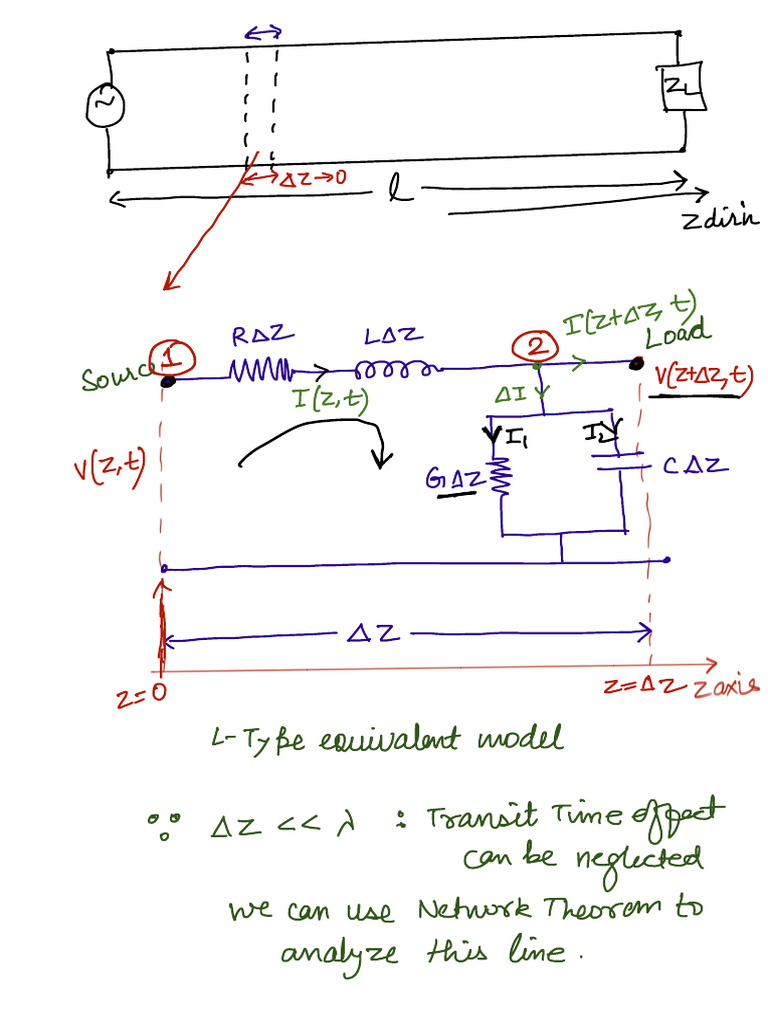 ~
ZL
ΔZ→0
l
Z dirn
RΔZ
LΔZ
I(Z+ΔZ, t)
Source
1
2
Load
I(Z,t)
ΔI
V(Z+ΔZ,t)
V(Z,t)
I1
I2
GΔZ
CΔZ
ΔZ
Z=0
Z=ΔZ
Z axis
L-Type equivalent model
∵ ΔZ << λ : Transit Time effect
can be neglected
we can use Network Theorem to
analyze this line.